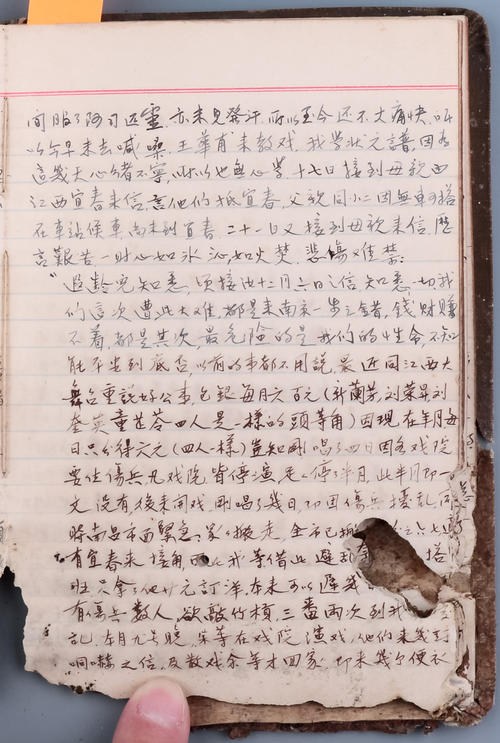 间服了阿司匹灵,亦未见发汗,所以至今还不大痛快,所
以今早未去喊嗓,王华甫来教戏,我学状元谱,因为
这几天心绪不宁,所以也无心学,十七日接到母亲由
江西宜春来信,言他们抵宜春,父亲同小二因无车可搭
在车站候车,尚未到宜春,二十一日又接到母亲来信,历
言艰苦一时心如水沁,如火焚,悲伤难禁:
"遐龄儿知悉,顷接汝十二月六日之信,知悉一切我
们这次遭此大难,都是来南京一步之错,钱财赚
不着,都是其次,最危险的是我们的性命,不知
能平安到底否,以前的事都不用说,最近同江西大
舞台重说好公事,包银每月六百元(新兰芳、刘荣昇、刘
奎英、童芷苓四人是一样的头等角)因现在半月每
日只分得六元(四人一样)岂知刚唱了四日因各戏院
要住伤兵凡戏院,皆停演,足足停了半月,此半月即一
文没有,后来开戏刚唱了几日,即因伤兵扰乱,同
时南昌市面紧急,家家搬走,全市已
有宜春来接角 我等借此避 搭
班只拿了他廿元订洋,本来可以迟几
有伤兵数人,欲敲竹槓,三番两次到我
乱,本月九号晚,余等在戏院演戏,他们来几
响吓之信,及散戏余等才回家,即来几个便衣